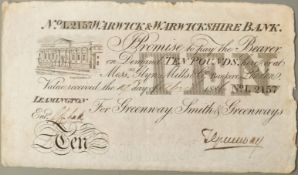 No L2157 WARWICK & WARWICKSHIRE BANK.
I Promise to pay the Bearer
on Demand TEN POUNDS, here or at
Messrs Glyn, Mills & Co Bankers London
Value received the day of No L 2157
LEAMINGTON For Greenway, Smith & Greenways
Entd
Ten Greenway